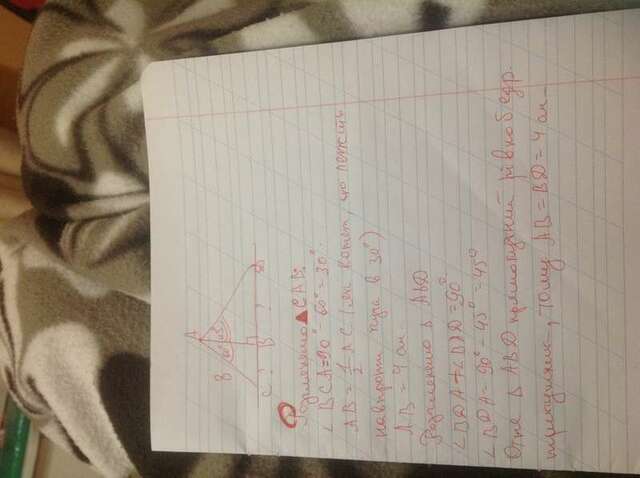 A
8 60° 45°
C ? B ? D
Розглянемо ▲ CAB:
∠ BCA=90° - 60° = 30°.
AB = 1/2 AC (як катет, що лежить
навпроти кута в 30°)
AB = 4 см.
Розглянемо Δ ABD
∠BDA + ∠BAD = 90°
∠ BDA = 90° - 45° = 45°
Отже Δ ABD прямокутний рівнобедр.
трикутник, тому AB = BD = 4 см